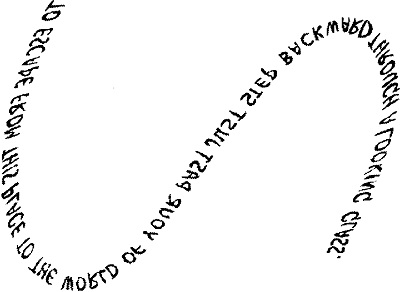 TO ESCAPE FROM THIS PLACE TO THE WORLD OF YOUR PAST JUST STEP BACKWARD THROUGH A LOOKING GLASS.